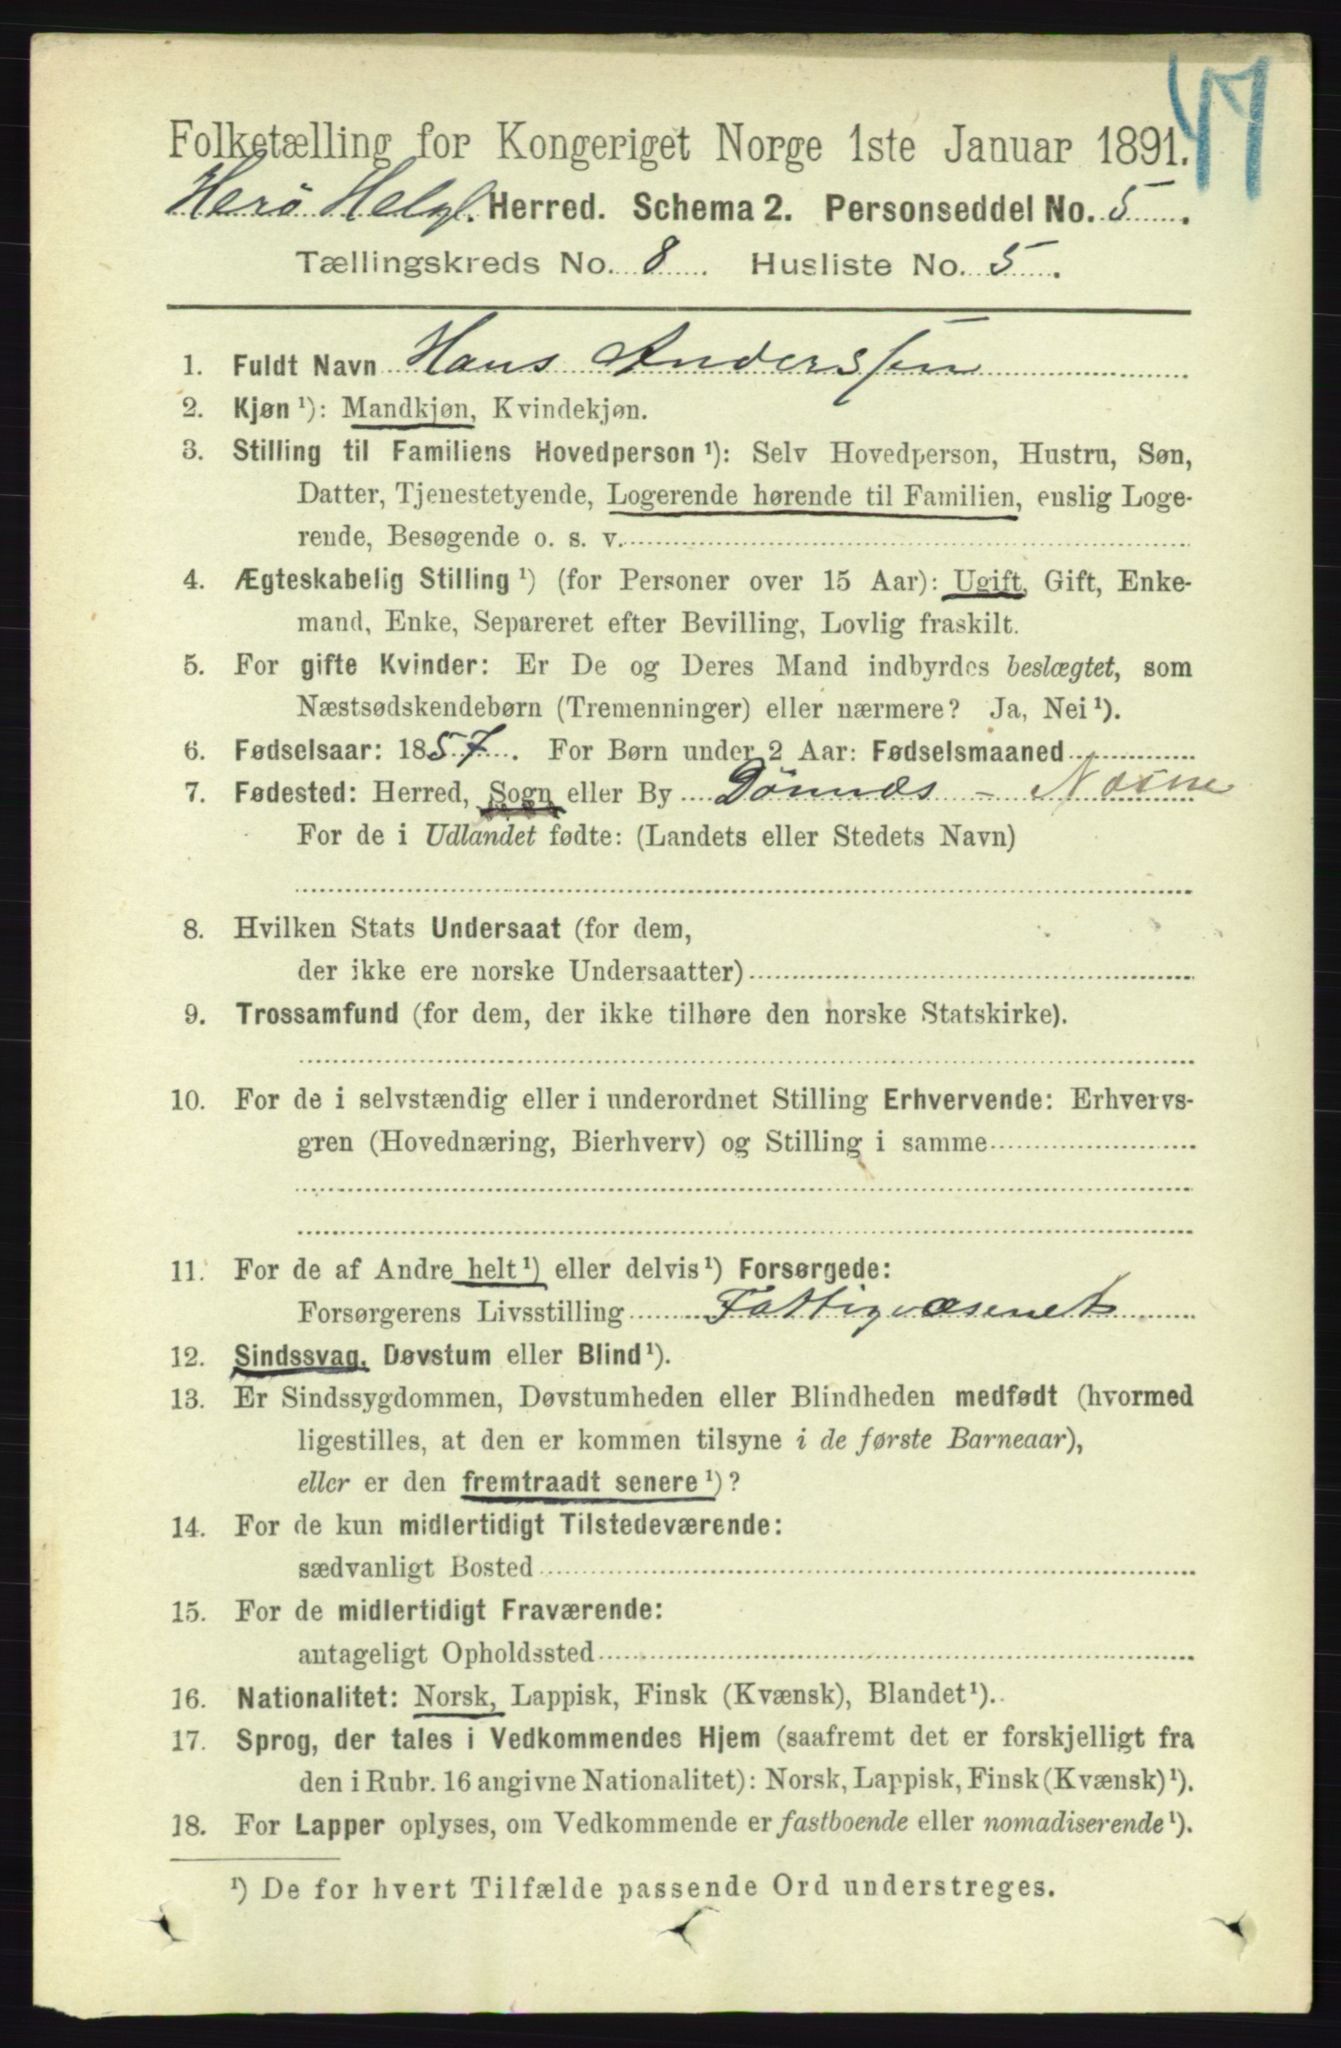 47
Folketælling for Kongeriget Norge 1ste Januar 1891.
Herø Helgl. Herred. Schema 2. Personseddel No. 5.
Tællingskreds No. 8. Husliste No. 5.
1. Fuldt Navn Hans Anderssen
2. Kjøn ¹): Mandkjøn, Kvindekjøn.
3. Stilling til Familiens Hovedperson ¹): Selv Hovedperson, Hustru, Søn,
Datter, Tjenestetyende, Logerende hørende til Familien, enslig Loge-
rende, Besøgende o. s. v.
4. Ægteskabelig Stilling ¹) (for Personer over 15 Aar): Ugift, Gift, Enke-
mand, Enke, Separeret efter Bevilling, Lovlig fraskilt.
5. For gifte Kvinder: Er De og Deres Mand indbyrdes beslægtet, som
Næstsødskendebørn (Tremenninger) eller nærmere? Ja, Nei ¹).
6. Fødselsaar: 1857. For Børn under 2 Aar: Fødselsmaaned
7. Fødested: Herred, Sogn eller By Dönnæs - Næsne
For de i Udlandet fødte: (Landets eller Stedets Navn)
8. Hvilken Stats Undersaat (for dem,
der ikke ere norske Undersaatter)
9. Trossamfund (for dem, der ikke tilhøre den norske Statskirke).
10. For de i selvstændig eller i underordnet Stilling Erhvervende: Erhvervs-
gren (Hovednæring, Bierhverv) og Stilling i samme
11. For de af Andre helt ¹) eller delvis ¹) Forsørgede:
Forsørgerens Livsstilling Fattigvæsenet
12. Sindssvag, Døvstum eller Blind ¹).
13. Er Sindssygdommen, Døvstumheden eller Blindheden medfødt (hvormed
ligestilles, at den er kommen tilsyne i de første Barneaar),
eller er den fremtraadt senere ¹)?
14. For de kun midlertidigt Tilstedeværende:
sædvanligt Bosted
15. For de midlertidigt Fraværende:
antageligt Opholdssted
16. Nationalitet: Norsk, Lappisk, Finsk (Kvænsk), Blandet ¹).
17. Sprog, der tales i Vedkommendes Hjem (saafremt det er forskjelligt fra
den i Rubr. 16 angivne Nationalitet): Norsk, Lappisk, Finsk (Kvænsk) ¹).
18. For Lapper oplyses, om Vedkommende er fastboende eller nomadiserende ¹).
¹) De for hvert Tilfælde passende Ord understreges.